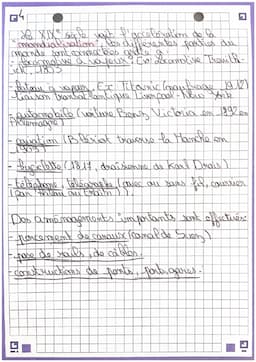 Le XIXe siècle voit l'accélération de la
mondialisation, les différentes parties du
monde sont connectées grâce à :
- locomotive à vapeur Ex: locomotive Trevithick, 1803
- bateau à vapeur. Ex: Titanic (naufrage 1912)
liaison transatlantique Liverpool-New York
- automobile (voiture Benz Victoria en 1892 en
Allemagne)
- aviation (Blériot traverse la Manche en
1909)
- bicyclette (1817, draisienne de Karl Drais)
- téléphone, télégraphe (avec ou sans fil, courrier
(par bateau ou train).
Des aménagements importants sont effectués:
- percement de canaux (canal de Suez)
- pose de rails, de câbles.
- constructions de ponts, ports, gares.